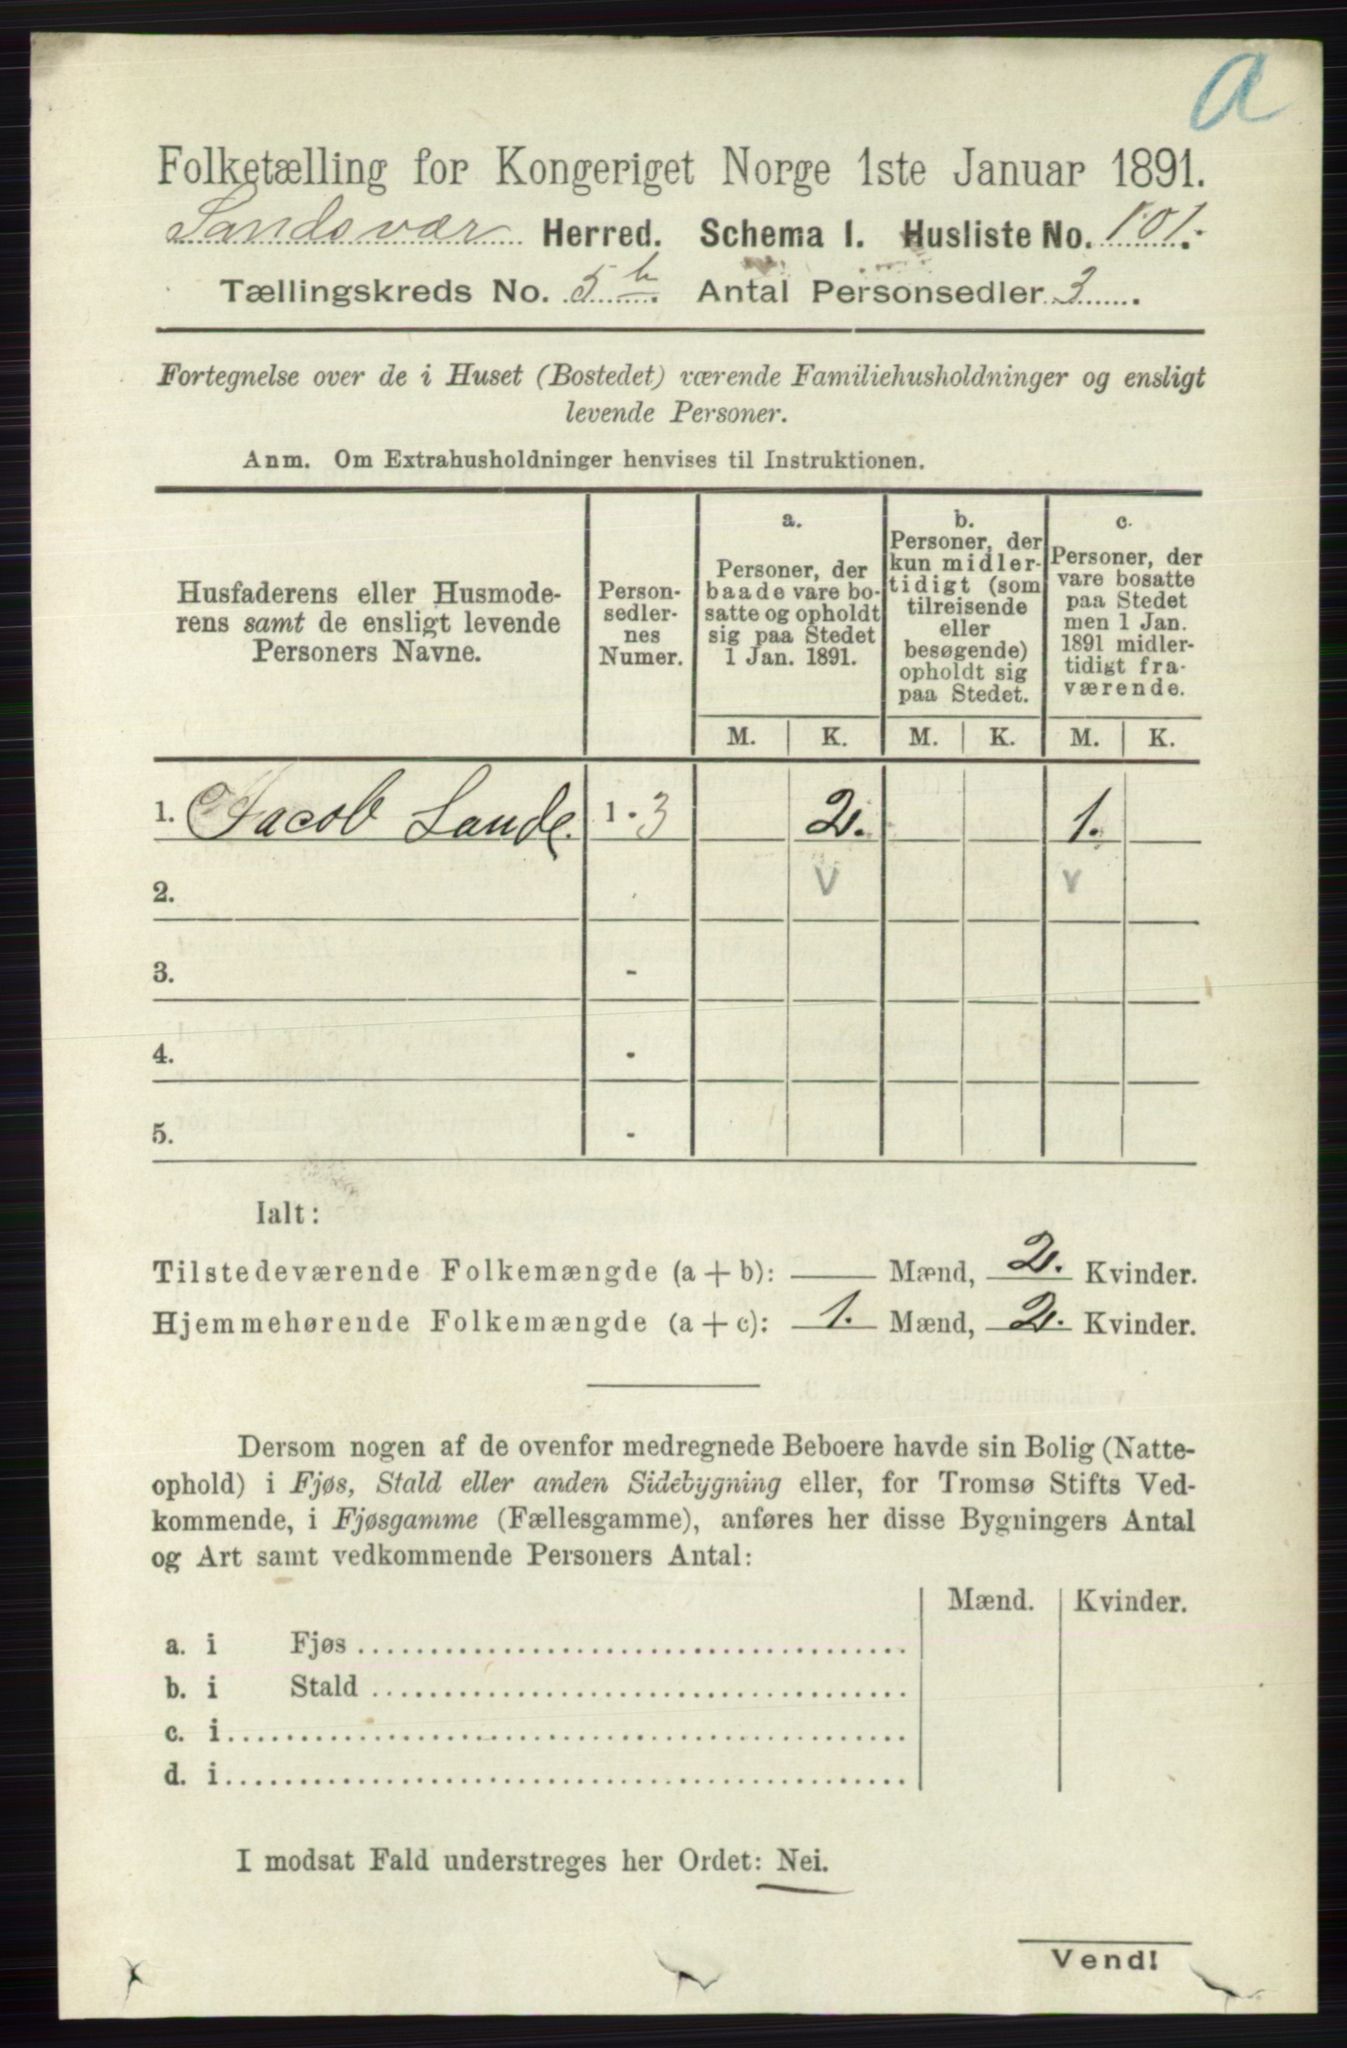 a
Folketælling for Kongeriget Norge 1ste Januar 1891.
Sandsvær Herred. Schema 1. Husliste No. 101.
Tællingskreds No. 5 b. Antal Personsedler 3.
Fortegnelse over de i Huset (Bostedet) værende Familiehusholdninger og ensligt
levende Personer.
Anm. Om Extrahusholdninger henvises til Instruktionen.
Husfaderens eller Husmode-
rens samt de ensligt levende
Personers Navne.
Person-
sedler-
nes
Numer.
a.
Personer, der
baade vare bo-
satte og opholdt
sig paa Stedet
1 Jan. 1891.
b.
Personer, der
kun midler-
tidigt (som
tilreisende
eller
besøgende)
opholdt sig
paa Stedet.
c.
Personer, der
vare bosatte
paa Stedet
men 1 Jan.
1891 midler-
tidigt fra-
værende.
M. K. M. K. M. K.
1. Jacob Lande. 1 - 3 2. 1.
2. V v
3. -
4. -
5. -
Ialt:
Tilstedeværende Folkemængde (a + b): — Mænd, 2. Kvinder.
Hjemmehørende Folkemængde (a + c): 1. Mænd, 2. Kvinder.
Dersom nogen af de ovenfor medregnede Beboere havde sin Bolig (Natte-
ophold) i Fjøs, Stald eller anden Sidebygning eller, for Tromsø Stifts Ved-
kommende, i Fjøsgamme (Fællesgamme), anføres her disse Bygningers Antal
og Art samt vedkommende Personers Antal:
Mænd. Kvinder.
a. i Fjøs
b. i Stald
c. i
d. i
I modsat Fald understreges her Ordet: Nei.
Vend!